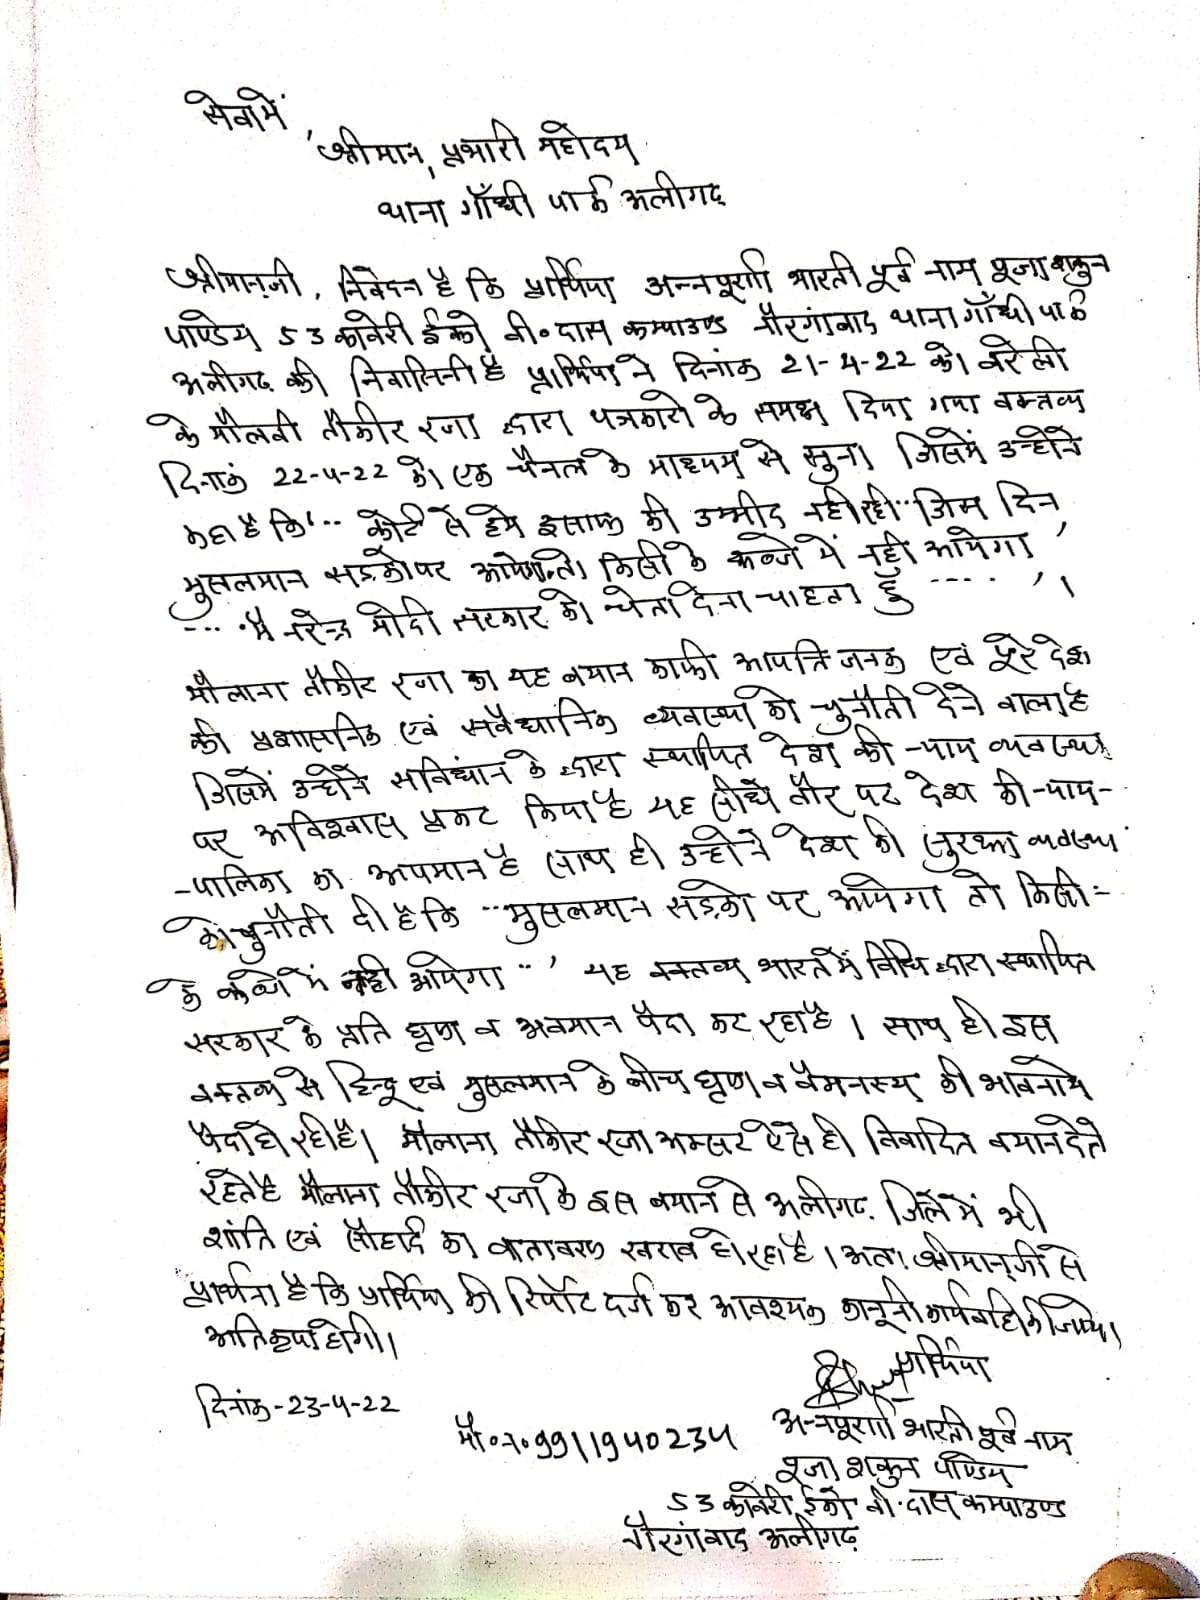 सेवामें,
श्रीमान, प्रभारी महोदय
थाना गाँधी पार्क अलीगढ़
श्रीमानजी, निवेदन है कि प्रार्थिया अन्नपूर्णा भारती पूर्व नाम पूजा शकुन
पाण्डेय 53 कावेरी ईको वी॰दास कम्पाउण्ड नौरंगाबाद थाना गाँधी पार्क
अलीगढ़ की निवासिनी है प्रार्थिया ने दिनांक 21-4-22 को बरेली
के मौलवी तौकीर रजा द्वारा पत्रकारो के समक्ष दिया गया वक्तव्य
दिनाकं 22-4-22 को एक चैनल के माध्यम से सुना जिसमें उन्होने
कहा है कि '.. कोर्ट से हमे इंसाफ की उम्मीद नही रही .. जिस दिन
मुसलमान सड़को पर आयेगा तो किसी के कब्जे में नही आयेगा '
--- . मै नरेन्द्र मोदी सरकार को चेता देना चाहता हूँ ----- '।
मौलाना तौकीर रजा का यह बयान काफी आपत्ति जनक एवं पूरे देश
की प्रशासनिक एवं सवैधानिक व्यवस्था को चुनौती देने वाला है
जिसमें उन्होने सविधांन के द्वारा स्थापित देश की न्याय व्यवस्था
पर अविश्वास प्रकट किया है यह सीधे तौर पर देश की न्याय-
-पालिका का अपमान है साथ ही उन्होने देश की सुरक्षा व्यवस्था
को चुनौती दी है कि ..मुसलमान सड़को पर आयेगा तो किसी -
के कब्जे में नही आयेगा ..' यह वक्तव्य भारत में विधि द्वारा स्थापित
सरकार के प्रति घृणा व अवमान पैदा कर रहा है । साथ ही इस
वक्तव्य से हिन्दू एवं मुसलमान के बीच घृणा व वैमनस्य की भावनाये
पैदा हो रही है। मौलाना तौकीर रजा अक्सर ऐसे ही विवादित बयान देते
रहते है मौलाना तौकीर रजा के इस बयान से अलीगढ़ जिले में भी
शांति एवं सौहार्द का वातावरण खराब हो रहा है । अतः श्रीमानजी से
प्रार्थना है कि प्रार्थिया की रिर्पोट दर्ज कर आवश्यक कानूनी कार्यवाही की जाये।
अति कृपा होगी।
प्रार्थिया
दिनांक-23-4-22
मो॰न॰9911940234 अन्नपूर्णा भारती पूर्व नाम
पूजा शकुन पाण्डेय
53 कावेरी, ईको वी. दास कम्पाउण्ड
नौरंगाबाद अलीगढ़